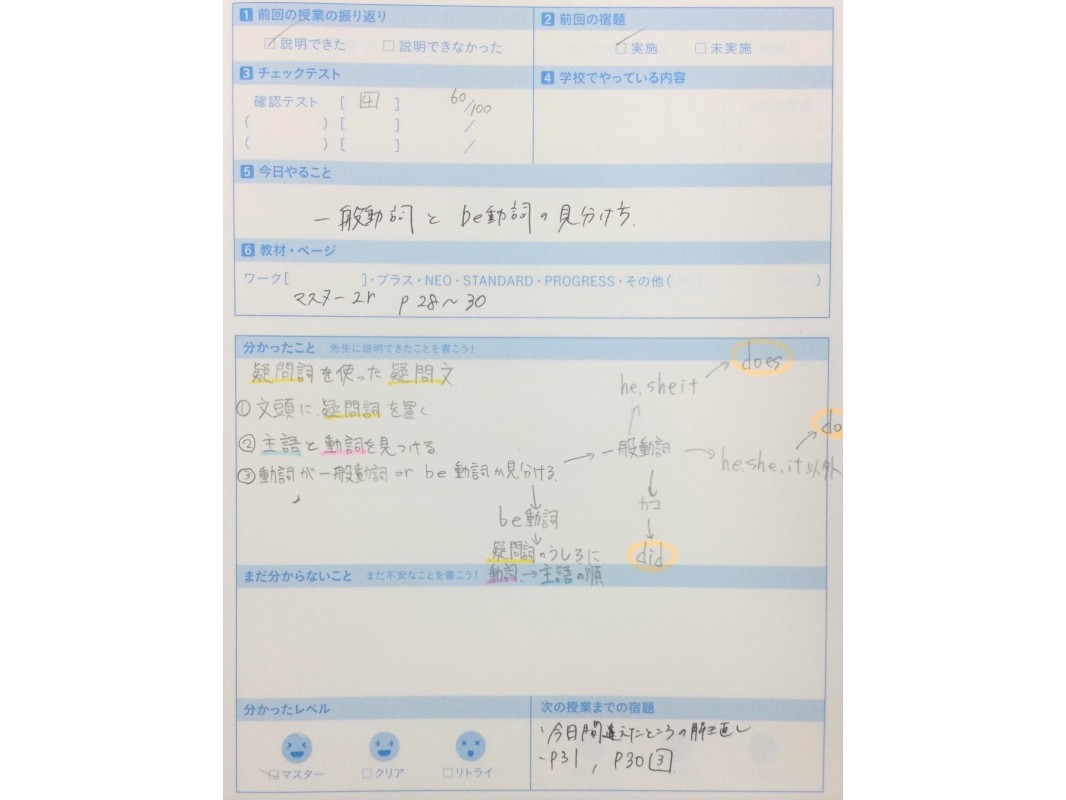 1 前回の授業の振り返り
☑ 説明できた □ 説明できなかった
2 前回の宿題
☑ 実施 □ 未実施
3 チェックテスト
確認テスト [ 4 ] 60/100
( ) [ ] /
( ) [ ] /
4 学校でやっている内容
5 今日やること
一般動詞と be動詞の見分け方.
6 教材・ページ
ワーク[ ]・プラス・NEO・STANDARD・PROGRESS・その他( )
マスター2n p 28〜30
分かったこと 先生に説明できたことを書こう!
疑問詞を使った疑問文
①文頭に疑問詞を置く
②主語と動詞を見つける.
③動詞が一般動詞 or be動詞か見分ける.
→ 一般動詞
he, she it → does
→ he.she.it以外 → do
カコ
did
be動詞
疑問詞のうしろに
動詞→主語の順
まだ分からないこと まだ不安なことを書こう!
分かったレベル
☑マスター □クリア □リトライ
次の授業までの宿題
・今日間違えたところの解き直し
・P31, P30 3